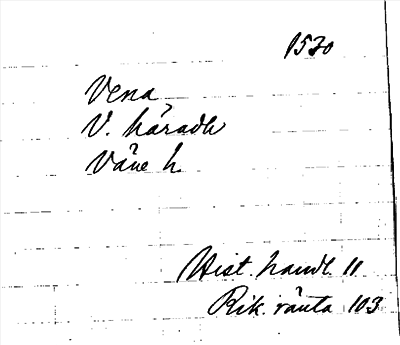 1530
Vena
V. häradh
Väne h.
Hist. handl. 11
Rik. ränta 103